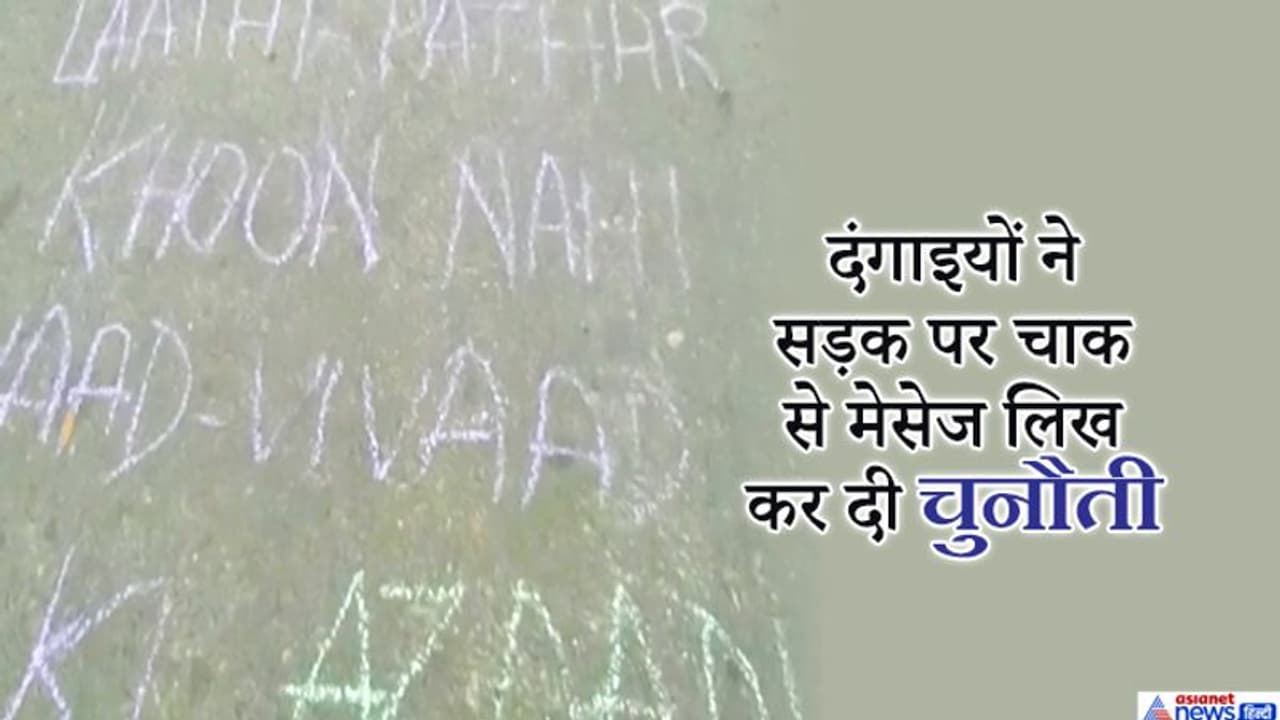 LATHI PATHAR
KHOON NAHI
VAAD-VIVAAD
KI AZAAD
दंगाइयों ने
सड़क पर चाक
से मेसेज लिख
कर दी चुनौती
asianet
news हिन्दी